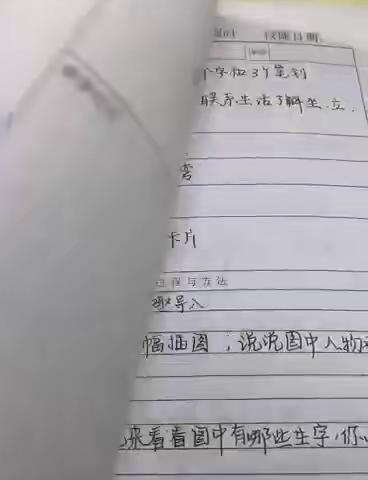 授课日期
课时
个字和3个笔划
联系生活了解坐、立、
弯
卡片
过程与方法
导入
幅插图，说说图中人物
来看看图中有哪些生字，你